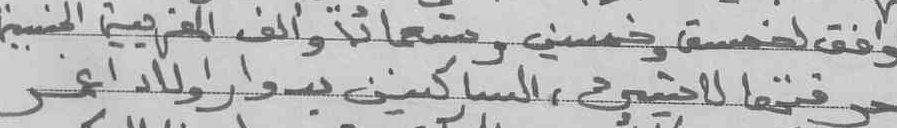 وافق لخمسة وخمسين وتسعمائة وألف المغربيين الجنسية
حرفتهما لا شيء، الساكنين بدوار اولاد اعمر